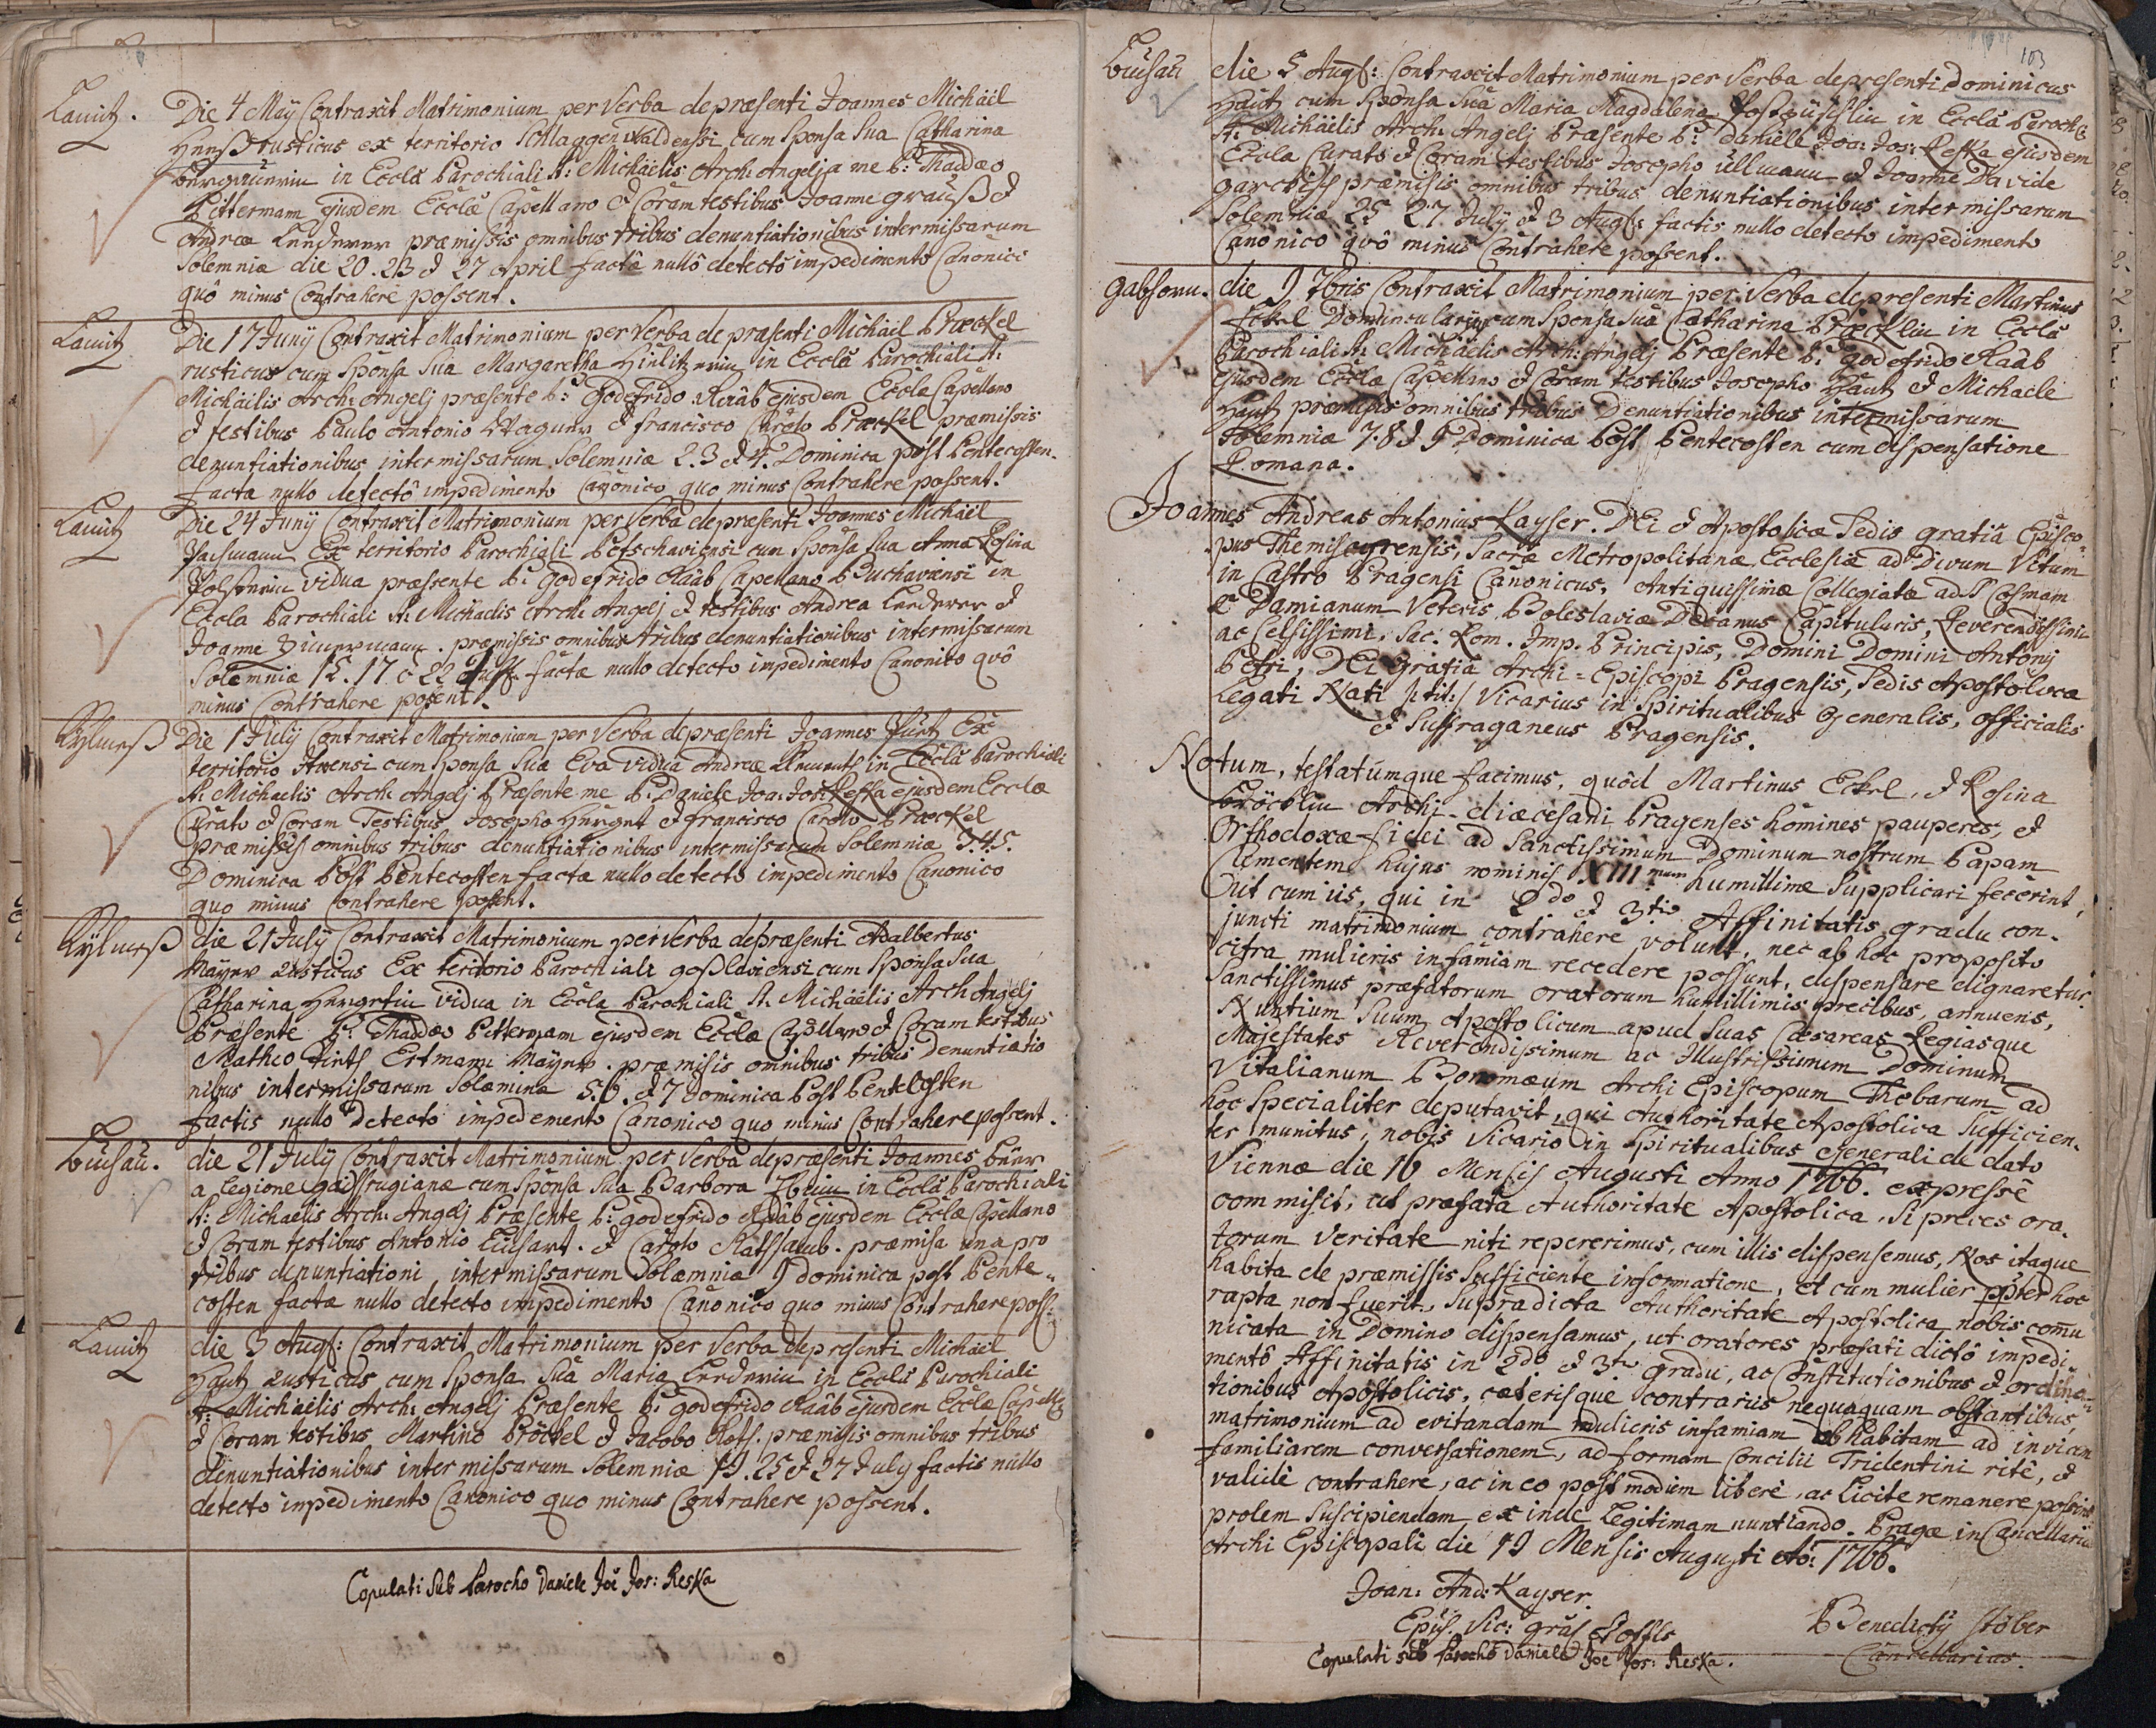 Lauitz.
Die 4 Maÿ Contraxit Matrimonium per Verba de præsenti Joannes Michäel
rusticus ex territorio Schlaggenwaldensi cum Sponsa Sua Catharina
in Eccla Parochiali St: Michäelis Arch: Angelj a me P: Thaddæo
Pittermam ejusdem Ecclæ Capellano & Coram testibus Joanne grauß &
Andrea Lerderer præmissis omnibus tribus denuntiationibus inter missarum
Solemnia die 20. 23 & 27 April facta nullô detectô impedimento Canonico
quô minus Contrahere possent.
Lauitz
Die 17 Junÿ Contraxit Matrimonium per Verba de præsenti Michäel Præckel
rusticus cum Sponsa Sua Margaretha in Eccla Parochiali St:
Michäilis Arch: Angelj præsente P: Godefrido Raâb ejusdem Ecclæ Capellano
& testibus Paulo Antonio Wagner & francisco Carolo Præckel præmissis
denuntiationibus inter missarum Solemnia 2. 3 & 4. Dominica post Pentecosten.
facta nullo detectô impedimento Canonico quo minus Contrahere possent.
Lauitz
Die 24 Junÿ Contraxit Matrimonium per Verba de præsenti Joannes Michäel
Ex territorio Parochiali Petschaviensi cum Sponsa Sua Anna Rosina
vidua præsente P: godefrido Raâb Capellano Buchavensi in
Eccla Parochiali St: Michäelis Arch: Angelj & testibus Andrea Lerderer &
Joanne Zimermann. præmissis omnibus tribus denuntiationibus inter missarum
Solemnia 15. 17 & 22 facta nullo detecto impedimento Canonico quô
minus Contrahere posent.
Die 1 Julÿ Contraxit Matrimonium per Verba de præsenti Joannes Ex
territorio cum Sponsa Sua Eva vidua Andreæ in Eccla Parochiali
St: Michaelis Arch: Angelj Præsente me P: Daniele Joa: Jos: Reska ejusdem Ecclæ
Curato & Coram Testibus Josepho & francisco Carolo Præckel
præmissis omnibus tribus denuntiationibus inter missarum Solemnia 3. 4. 5.
Dominica Post Pentecosten facta nullo detecto impedimento Canonico
quo minus Contrahere possent.
die 21 Julÿ Contraxit Matrimonium per Verba de præsenti Adalbertus
Maÿer rusticus Ex teritorio Parochiali goßlaviensi cum Sponsa Sua
Catharina vidua in Eccla Parochiali St. Michäelis Arch Angelj
Præsente P: Thaddæo Pittermam ejusdem Ecclæ Capellano & Coram testibus
Matheo Ertmann Maÿer. præmisis omnibus tribus denuntiatio
nibus inter missarum Solæmnia 5. 6. & 7 Dominica Post Pentecosten
factis nullo detecto impedemento Canonico quo minus Contrahere possent.
Buchau.
die 21 Julÿ Contraxit Matrimonium per Verba de præsenti Joannes
a Legione gaissrugianæ cum Sponsa Sua Barbora in Eccla Parochiali
St: Michaelis Arch: Angelj Præsente P: godefrido Raâb ejusdem Ecclæ Capellano
& Coram testibus Antonio & Carolo præmisa una pro
tribus denuntiationi inter missarum Solæmnia 9 dominica post Pente-
costen facta nullo detecto impedimento Canonico quo minus Contrahere poss:
Lauitz
die 3 Augs: Contraxit Matrimonium per Verba de presenti Michäel
Hautz rusticus cum Sponsa Suâ Maria Lerderin in Eccla Parochiali
St: Michäilis Arch: Angelj Præsente P: godefrido Raâb ejusdem Ecclæ
& Coram testibus Martino Pröckel & Jacobo præmisis omnibus tribus
denuntiationibus inter missarum Solemnia 19. 25 & 27 July factis nullo
detecto inpedimento Canonico quo minus Contrahere possent.
Copulati Sub Parocho Daniele Joē Jos: Reska
103
Buchau
die 5 Augs: Contraxit Matrimonium per Verba de presenti Dominicus
Hautz cum Sponsa Suâ Maria Magdalena in Eccla Paroch:
St: Michäelis Arch: Angelj Præsente P: daniele Joa: Jos: Reska ejusdem
Eccla Curato & Coram testibus Josepho Ullmann & Joanne Davide
præmisis omnibus tribus denuntiationibus inter missarum
Solemnia 25 27 Julÿ & 3 Augs: factis nullo detecto impedimento
Canonico quô minus Contrahere possent.
gabhorn.
die 9 7bris Contraxit Matrimonium per Verba de presenti Martinus
Eckel cum Sponsa Suâ Catharina Præcklin in Eccla
Parochiali St: Michäelis Arch: Angelj Præsente P: godefrido Raâb
ejusdem Ecclæ Capellano & Coram testibus Josepho Hautz & Michaele
Hautz præmisis omnibus tribus Denuntiationibus inter missarum
Solemnia 7. 8 & 9 Dominica Post Pentecosten cum dispensatione
Romana.
Joannes Andreas Antonius Kayser. DEi & Apostolicæ Sedis gratiâ Episco-
pus Themiscyrensis, Sacræ Metropolitanæ Ecclesiæ ad Divum Vitum
in Castro Pragensi Canonicus, Antiquissimæ Collegiatæ ad S Cosmam
& Damianum Veteris Boleslaviæ Decanus Capitularis, Reverendissimi
ac Celsissimi, Sac. Rom. Imp. Principis, Domini Domini Antonÿ
Petri, DEi gratiâ Archi-Episcopi Pragensis, Sedis Apostolica
Legati Nati /:tit:/ Vicarius in Spiritualibus Generalis, officialis
& Suffraganeus Pragensis.
Notum, testatúmque facimus, quôd Martinus Eckel, & Rosina
Pröcklin Archi-diæcesani Pragenses homines pauperes, &
Orthodoxæ fidei ad Sanctissimum Dominum nostrum Papam
Clementem hujus nominis XIIImum humillime Supplicari fecerint,
Out cum iis, qui in 2do & 3tio Affinitatis gradu con-
juncti matrimonium contrahere volunt, nec ab hoc proposito
citra mulieris infamiam recedere possunt, dispensare dignaretur.
Sanctissimus præfatorum oratorum humillimis precibus, annuens,
Nuntium Suum Apostolicum apud Suas Cæsareas Regiasque
Majestates Reverendissimum ac Illustrissimum Dominum
Vitalianum Boromæum Archi Episcopum Thebarum ad
hoc Specialiter deputavit, qui Authoritate Apostolica Sufficien-
ter munitus, nobis Vicario in Spiritualibus Generali de dato
Viennæ die 16 Mensis Augusti Anno 1766. expressê
commisit, ut præfata Authoritate Apostolica, Si preces ora-
torum veritate niti repererimus, cum illis dispensemus, Nos itaque
habita de præmissis Sufficiente informatione, et cum mulier ppter hoc
rapta non fuerit, Supradicta Authoritate Apostolica nobis comu
nicata in Domino dispensamus, ut oratores præfati dictô impedi-
mentô Affinitatis in 2do & 3tio gradu, ac Constitutionibus & ordina-
tionibus Apostolicis, cæterisque contrariis nequaquam obstantibus,
matrimonium ad evitandam mulieris infamiam ob habitam ad invicem
familiarem conversationem, ad formam Concilii Tridentini ritê, &
validê contrahere, ac in eo post modum liberè, ac licite remanere possint
prolem Suscipiendam ex inde Legitimam nuntiando. Pragæ in Cancellaria
Archi Episcopali die 19 Mensis Augusti Ao: 1766.
Joan: And: Kayser.
Epūs. Vic: grāl & offls
Benedictÿ Stöber
Cancellarius.
Copulati sub Parocho Daniele Joē Jos: Reska.